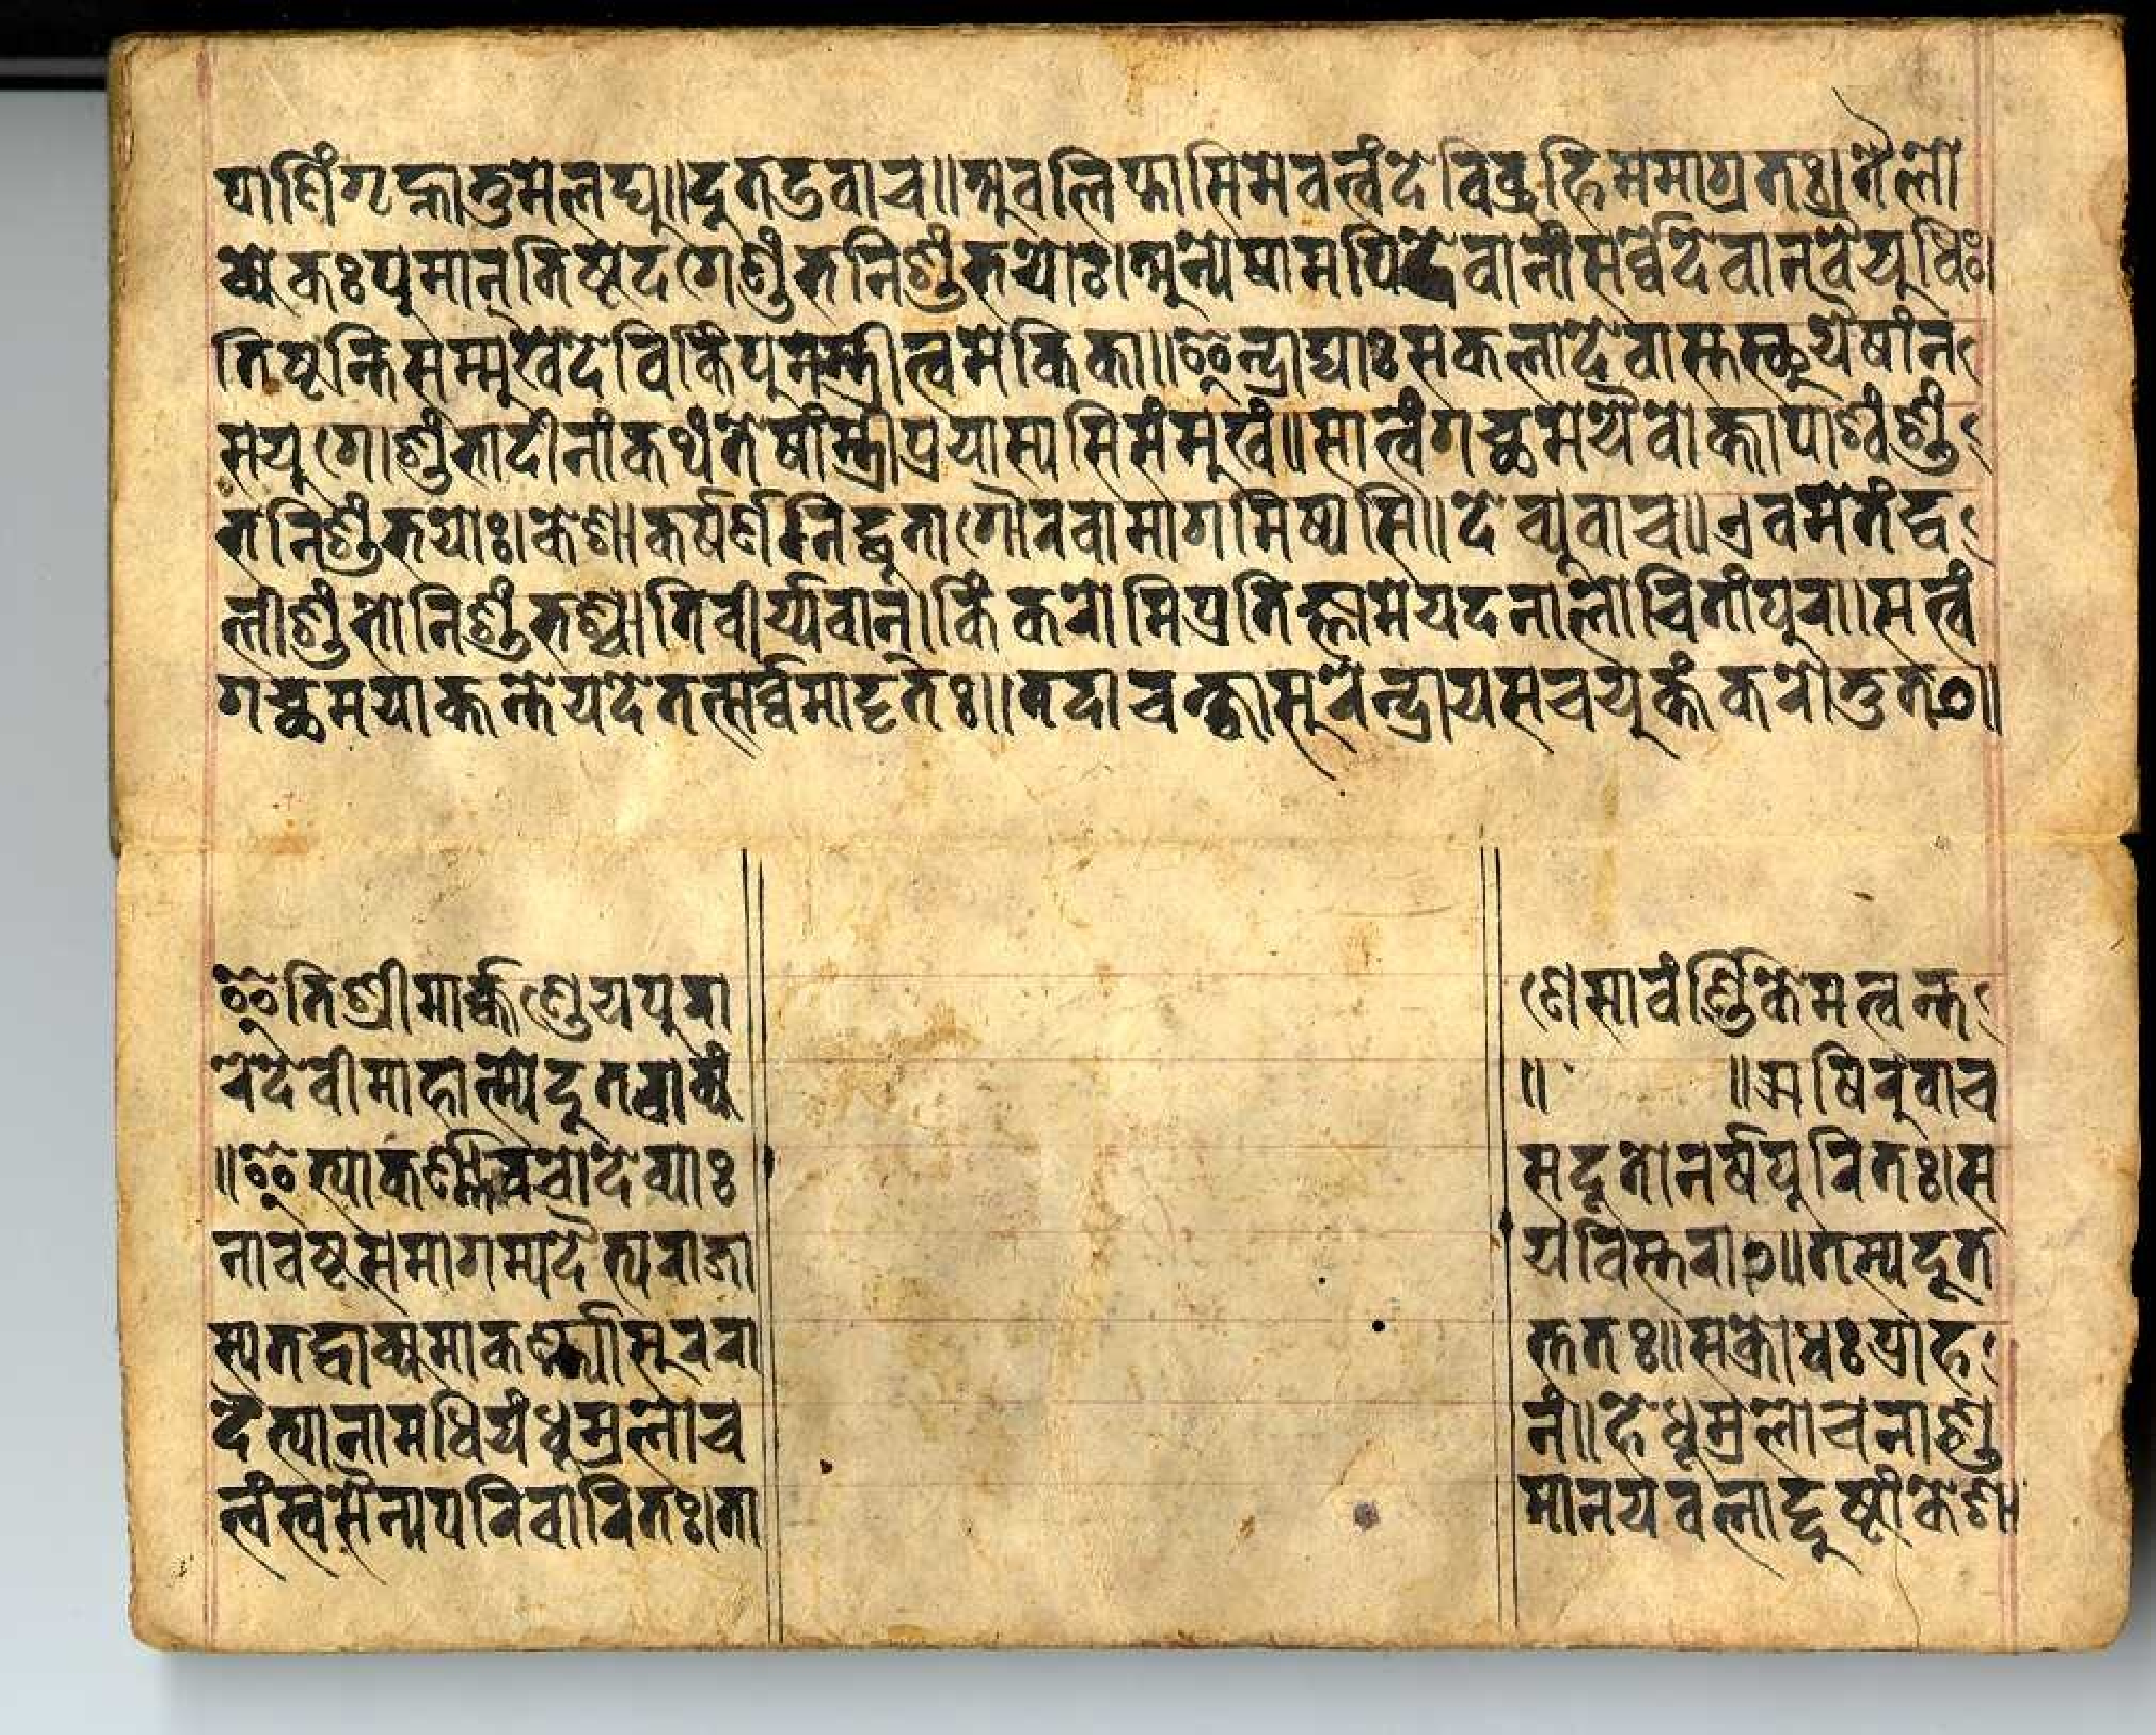 पाणिंगृह्नातुमेलघु॥दुतउवाच॥अवलिप्तासिमेवत्वंदेविव्रुहिममाग्रतः।त्रैलो
क्येकःपुमान्तिष्टेदगेशुंभनिशुंभयोः।अन्येषामपिदेवानांसर्व्वेदेवानवैयुधिः।
तिष्टन्तिसम्मुखेदेविकिंपुनस्त्रीत्वमेकिका॥इन्द्राद्याःसकलादेवास्तस्थुर्येषांन
सयुगे।शुंभादीनांकथंतेषांस्त्रीप्रयास्यसिसंमुखं॥सात्वंगच्छमेयैवोक्तापार्श्वंशुं
भनिशुंभयोः।केशाकर्षणनिद्धूतागौरवामागमिष्यसि॥देव्युवाच॥एवमेतंद्व
लीशुंभोनिशुंभश्चातिवीर्य्यवान्।किंकरोमिप्रतिज्ञामेयदनालोचितांपुरा॥सत्वं
गच्छमयाक्तन्तेयदेतत्सर्व्वमादृतः॥तदाचक्ष्वासुरेन्द्रायसचयुक्तंकरोतुत०॥
इतिश्रीमार्क्कण्डेयपुरा णेसावंर्ण्णिकेमत्वन्त
रेदेवीमाहात्म्येदूतवाक्यं ॥ ॥ऋषिरुवाच
॥इत्याकर्ण्णवचोदेव्याः सदूतोनर्षपूरितः।स
नावष्टसमागम्यदैत्यराजा यविस्तरा०॥तस्यदूत
स्यतद्वाक्यमाकर्ण्ण्यासुररा त्ततः॥सक्रोधःप्राह
दैत्यानामधिपंधूम्रलोच नं॥हेधूम्रलोचनाशु
त्वंस्वसैन्यपरिवारितः।ता मानयवलाद्दुष्टांकेशा